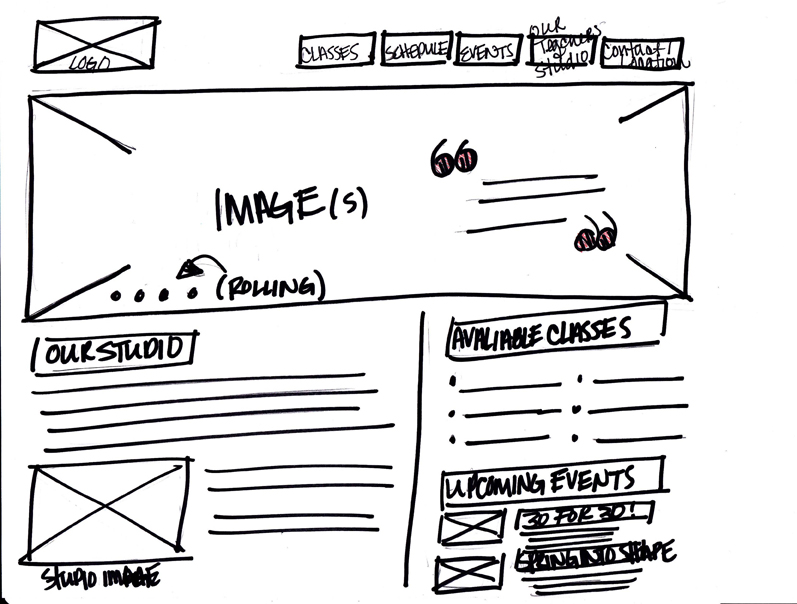 LOGO
CLASSES
SCHEDULE
EVENTS
OUR
Teachers
&
STUDIO
Contact/
Location
IMAGE(S)
(ROLLING)
OUR STUDIO
AVALIABLE CLASSES
UPCOMING EVENTS
30 FOR 30!
SPRING INTO SHAPE
STUDIO IMAGE